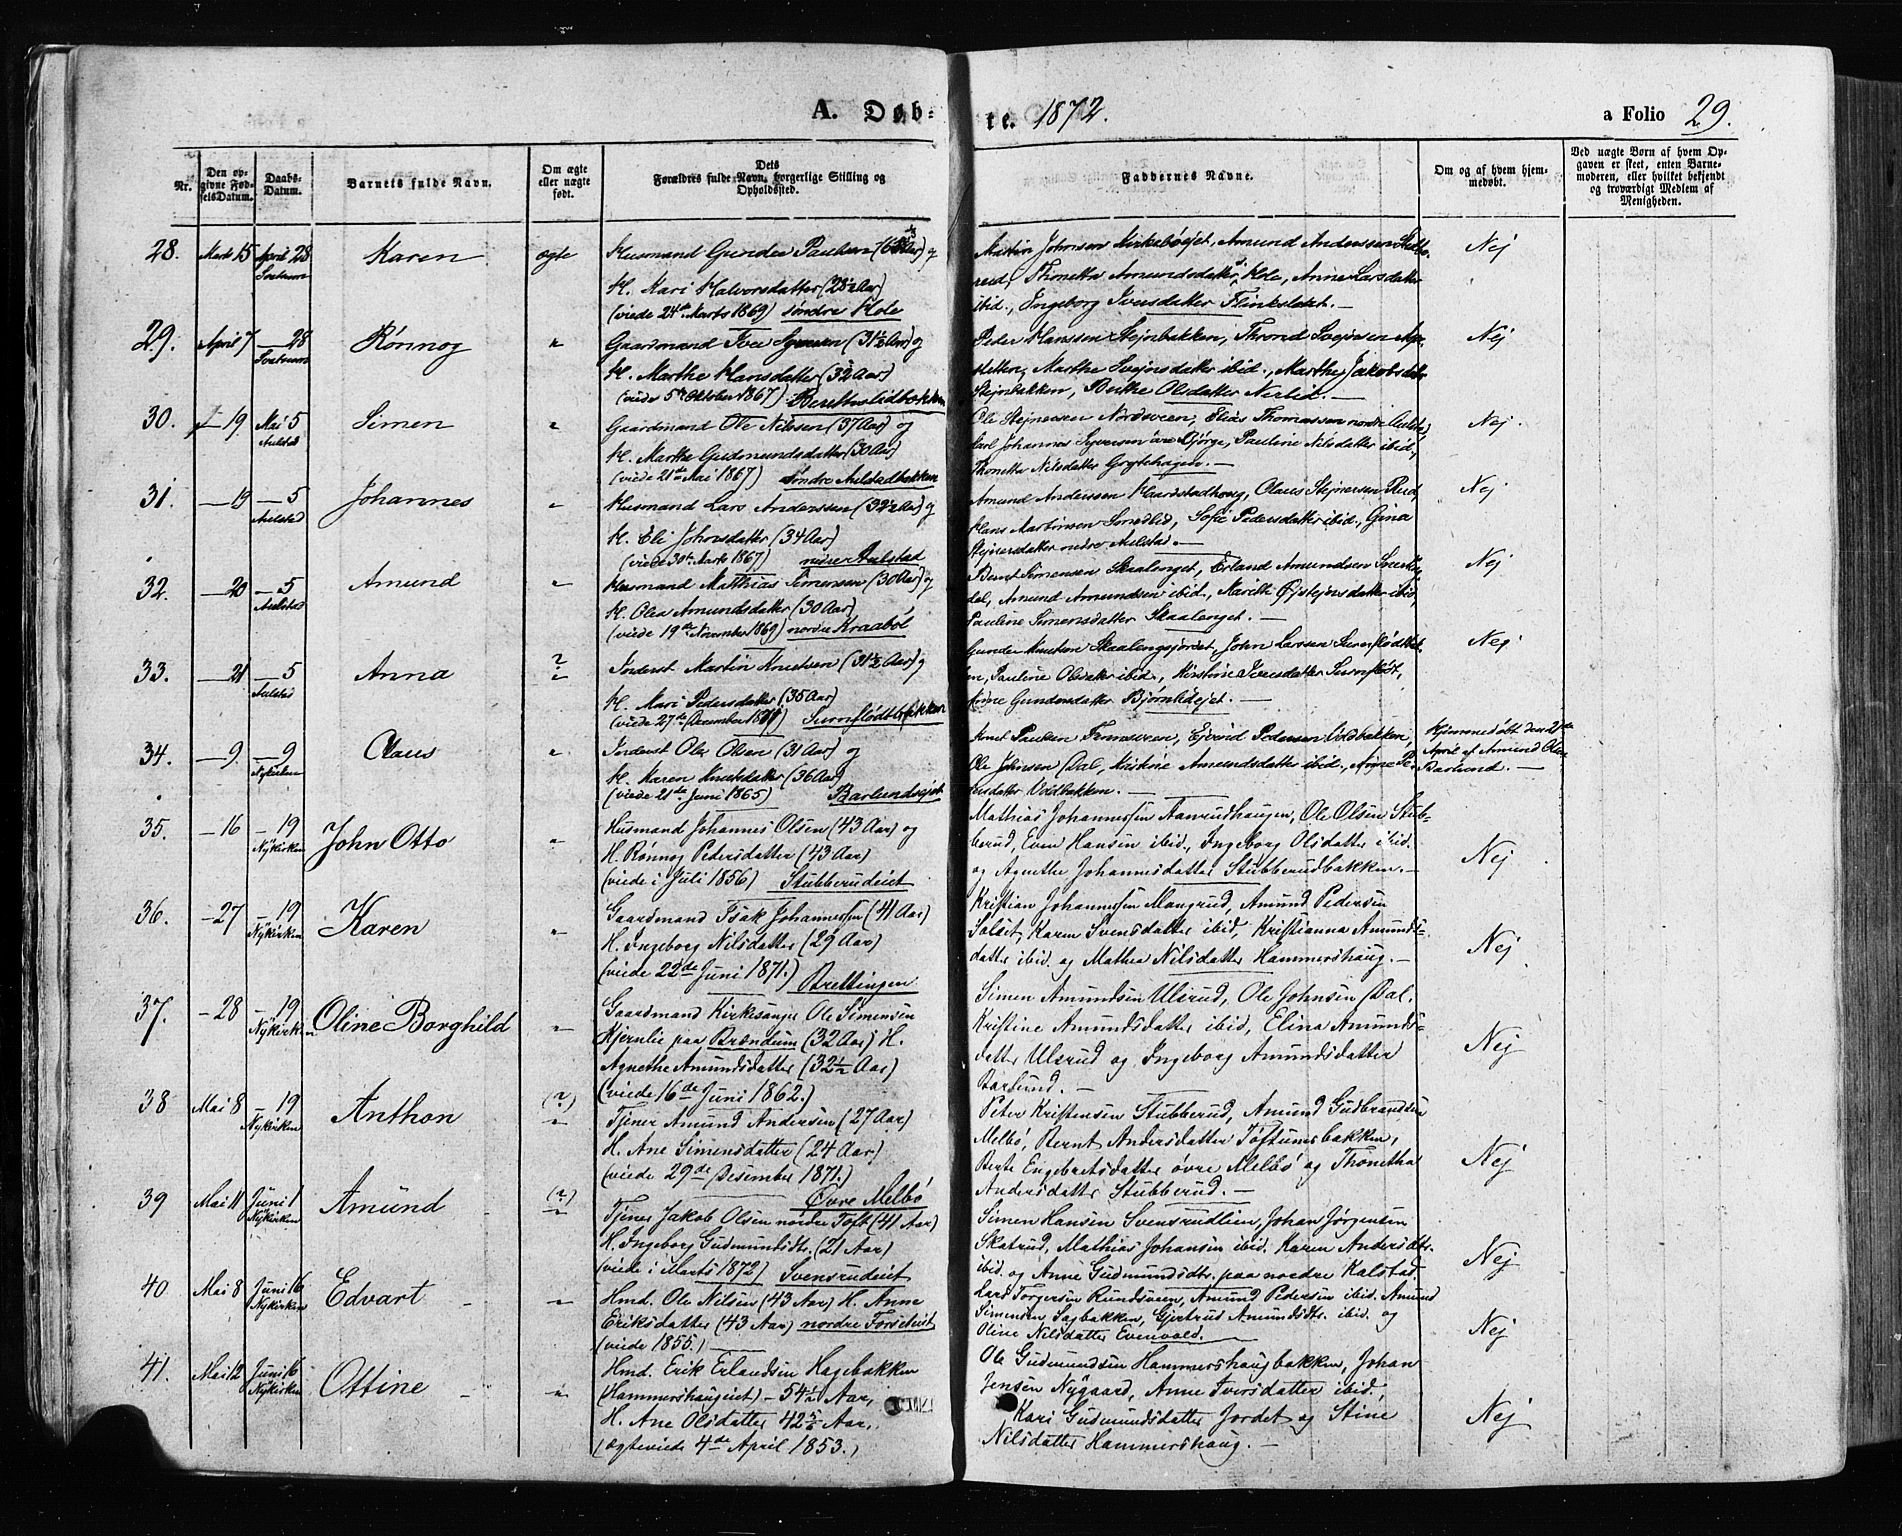 A. Døb-
te. 1872.
a Folio 29.
Nr.
Den op-
givne Fød-
selsDatum.
Daabs-
Datum.
Barnets fulde Navn.
Om ægte
eller uægte
født.
Dets
Forældres fulde Navn, borgerlige Stilling og
Opholdssted.
Faddernes Navne.
Om og af hvem hjem-
medøbt.
Ved uægte Børn af hvem Op-
gaven er skeet, enten Barne-
moderen, eller hvilket bekjendt
og troværdigt Medlem af
Menigheden.
28. Marts 15 April 28 Karen ægte
Husmand Gunder Paulsen og
H. Mari Halvorsdatter (28½ Aar)
(viede 24de Marts 1869) søndre Hole
Martin Johnsen Kirkebøejet, Amund Anderssen
Thonetta Amundsdatter Hole, Anne Larsdatter
ibid., Ingeborg Iversdatter —
Nej
29. April 7 — 28 Rønnog "
Gaardmand Iver Syversen (31½ Aar) og
H. Marthe Hansdatter (32 Aar)
(viede 5te October 1867)
Peder Hanssen Stejnbakken, Thrond
Marthe Svejnsdatter ibid., Marthe Jakobsdtr
Stejnbakken, Berthe Olsdatter Nerlid. —
Nej
30. — 19 Mai 5 Aulstad Simen "
Gaardmand Ole Nilssen (37 Aar) og
H. Marthe Gudmundsdatter (30 Aar)
(viede 21de Mai 1867) søndre Aulstadbakken
Ole Stejnersen Nordsveen, Elias Thomassen nordre Aulstad,
Carl Johannes Syversen øvre Bjørge, Pauline Nilsdatter ibid.,
Thonetta Nilsdatter Grytehagen. —
Nej
31. — 19 — 5 Aulstad Johannes "
Husmand Lars Anderssen (32½ Aar) og
H. Eli Johnsdatter (34 Aar)
(viede 30te Marts 1867) nedre Aulstad
Amund Anderssen Haardstadhoug, Olaus Stejnersen Rud,
Hans Martinsen Smedlid, Sofie Pedersdatter ibid., Gina
Stejnersdatter nedre Aulstad. —
Nej
32. — 20 — 5 Aulstad Amund "
Husmand Matthias Simensen (30 Aar) og
H. Olea Amundsdatter (30 Aar)
(viede 19de November 1869) nordre Kraabøl
Bernt Simensen Skaalenget, Erland Amundsen
dal, Amund Amundsen ibid., Marith Øjstejnsdatter ibid,
Pauline Simensdatter Skaalenget. —
Nej
33. — 21 — 5 Aulstad Anna ? "
Inderst Martin Knutsen (31½ Aar) og
H. Mari Pedersdatter (35 Aar)
(viede 27de December 1871) Surnflødtbakken
Gunder Knutsen Skaalengsjordet, John Larsen Surnflødtbak-
en, Pauline Olsdatter ibid., Kirstine Iversdatter Surnflødt,
Anne Gundersdatter Bjørnlidejet. —
Nej
34. — 9 — 9 Nykirken Claus "
Inderst Ole Olsen (31 Aar) og
H. Karen Knutsdatter (36 Aar)
(viede 21de Juni 1865) Barlundsejet
Knut Paulsen Tromsveen, Ejvind Pedersen Voldbakken,
Ole Johnsen Dal, Kristine Amundsdatter ibid., Anne Pe-
dersdatter Voldbakken. —
Hjemmedøbt den 21de
April af Amund Olsen
Barlund. —
35. — 16 — 19 Nykirken John Otto "
Husmand Johannes Olsen (43 Aar) og
H. Rønnog Pedersdatter (43 Aar)
(viede i Juli 1856) Stubberudeiet
Mathias Johannessen Aanrudhaugen, Ole Olsen Stub-
berud, Even Hansen ibid, Ingeborg Olsdatter ibid.
og Agnethe Johannesdatter Stubberudbakken. —
Nej
36. — 27 — 19 Nykirken Karen "
Gaardmand Isak Johannessen (41 Aar)
H. Ingeborg Nilsdatter (29 Aar)
(viede 22de Juni 1871.) Brettingen
Kristian Johannessen Mangrud, Amund Pedersen
Solset, Karen Svensdatter ibid, Kristianna Amunds-
datter ibid. og Mathea Nilsdatter Hammershaug. —
Nej
37. — 28 — 19 Nykirken Oline Borghild "
Gaardmand Kirkesanger Ole Simensen
Hjernlie paa Brændum (32 Aar) H.
Agnethe Amundsdatter (32½ Aar)
(viede 16de Juni 1862.)
Simen Amundsen Ulsrud, Ole Johnsen Dal.
Kristine Amundsdatter ibid, Elina Amunds-
datter Ulsrud og Ingeborg Amundsdatter
Barlund. —
Nej
38 Mai 8 — 19 Nykirken Anthon (?) "
Tjener Amund Andersen (27 Aar)
H. Ane Simensdatter (24 Aar)
(viede 29de Desember 1871.)
Øvre Melbö
Peter Kristensen Stubberud, Amund Gudbrandsen
Melbö, Bernt Andersdatter Toftumsbakken,
Berte Engebretsdatter övre Melbö og Thonetha
Andersdatter Stubberud. —
Nej
39 Mai 11 Juni 1 Nykirken Amund (?) "
Tjener Jakob Olsen nordre Toft (41 Aar)
H. Ingeborg Gudmundsdtr. (21 Aar)
(viede i Marts 1872) Svensrudeiet
Simen Hansen Svensrudlien, Johan Jörgensen
Skatrud, Mathias Johansen ibid. Karen Andersdtr.
ibid. og Anne Gudmundsdtr. paa nordre Kalstad.
Nej
40 Mai 8 Juni 16 Nykirken Edvart "
Hmd. Ole Nilsen (43 Aar) H. Anne
Eriksdatter (43 Aar) nordre Forseteiet
(viede 1855.)
Lars Torgersen Rundsveen, Amund Pedersen ibid. Amund
Simensen Sagbakken, Gjertrud Amundsdtr. ibid. og
Oline Nilsdatter Evenvold.
Nej
41. Mai 12 Juni 16 Nykirken Ottine "
Hmd. Erik Erlandsen Hagebakken
(Hammershaugeiet) — 54½ Aar,
H. Ane Olsdatter 42 Aar,
(ægteviede 4de April 1853.)
Ole Gudmundsen Hammershaugbakken, Johan
Jensen Nygaard, Anne Iversdatter ibid,
Kari Gudmundsdatter Jordet og Stine
Nilsdatter Hammershaug. —
Nej